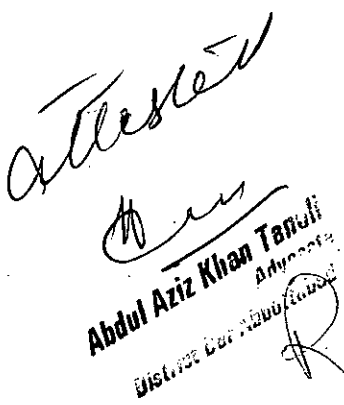 attested
Abdul Aziz Khan Tanoli
Advocate
District Bar Abbottabad